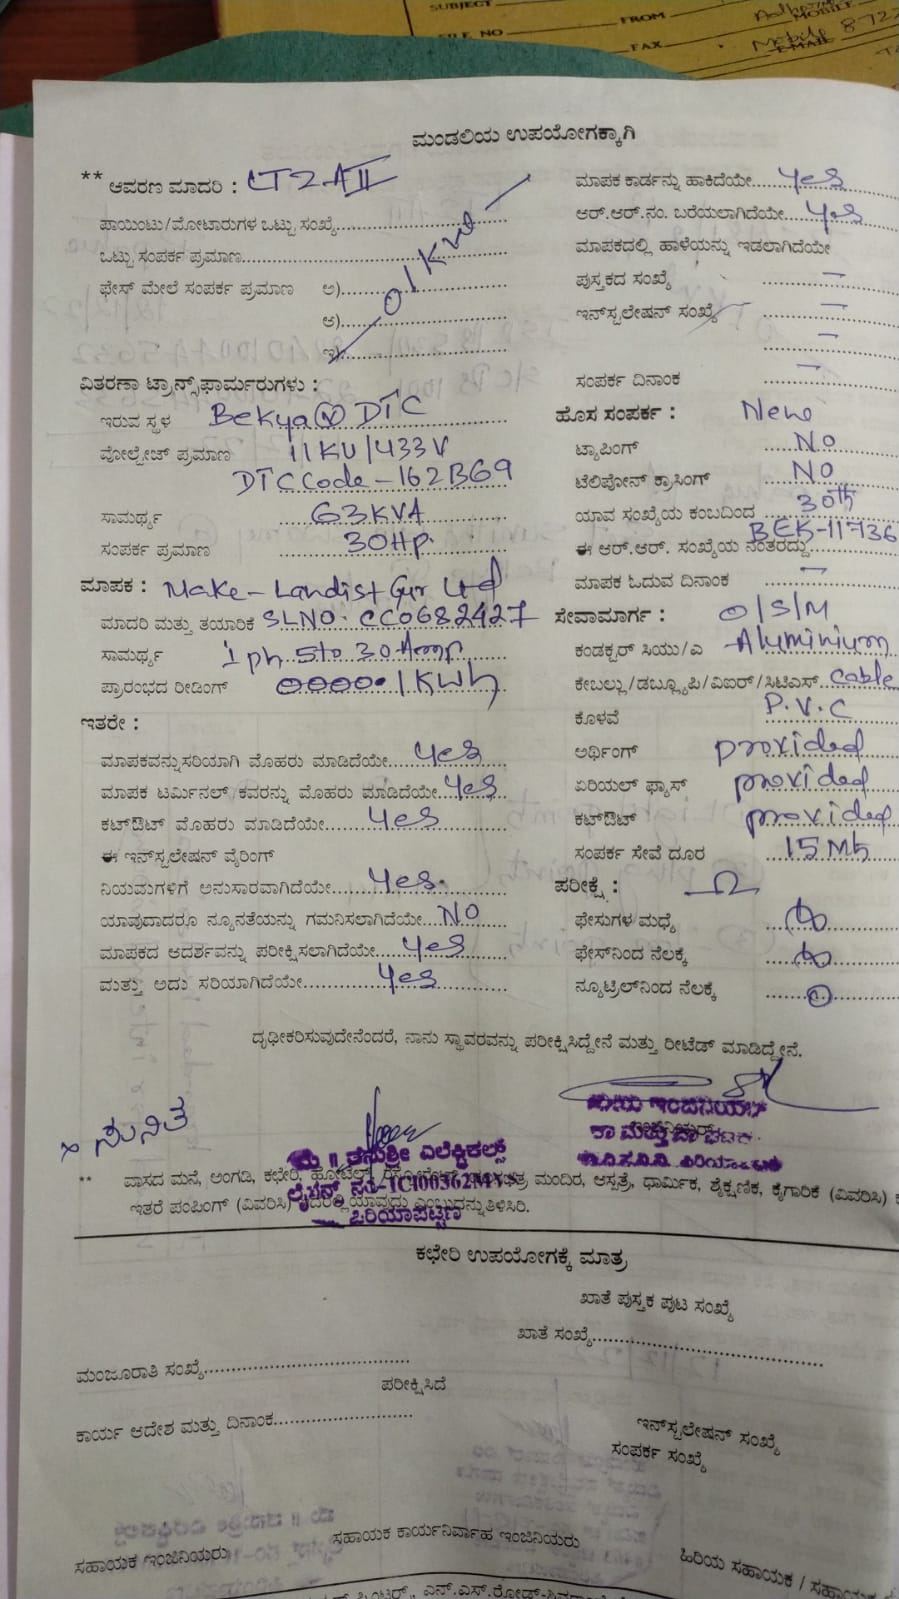 SUBJECT
FROM
MOBILE
FILE NO
FAX
E-MAIL
Mobile 8722
ಮಂಡಲಿಯ ಉಪಯೋಗಕ್ಕಾಗಿ
** ಆವರಣ ಮಾದರಿ : LT2-AII
ಪಾಯಿಂಟು/ಮೋಟಾರುಗಳ ಒಟ್ಟು ಸಂಖ್ಯೆ
ಒಟ್ಟು ಸಂಪರ್ಕ ಪ್ರಮಾಣ
ಫೇಸ್ ಮೇಲೆ ಸಂಪರ್ಕ ಪ್ರಮಾಣ ಅ)
ಆ)
ಇ)
01 KW
ವಿತರಣಾ ಟ್ರಾನ್ಸ್‌ಫಾರ್ಮರುಗಳು :
ಇರುವ ಸ್ಥಳ Bekya (V) DTC
ವೋಲ್ಟೇಜ್ ಪ್ರಮಾಣ 11KV/433V
DTC Code - 162B69
ಸಾಮರ್ಥ್ಯ 63KVA
ಸಂಪರ್ಕ ಪ್ರಮಾಣ 30HP
ಮಾಪಕ : Make - Landist Gyr Ltd
ಮಾದರಿ ಮತ್ತು ತಯಾರಿಕೆ SLNO. CC0682427
ಸಾಮರ್ಥ್ಯ 1ph 5to 30 Amp
ಪ್ರಾರಂಭದ ರೀಡಿಂಗ್ 0000.1 KWh
ಇತರೇ :
ಮಾಪಕವನ್ನು ಸರಿಯಾಗಿ ಮೊಹರು ಮಾಡಿದೆಯೇ Yes
ಮಾಪಕ ಟರ್ಮಿನಲ್ ಕವರನ್ನು ಮೊಹರು ಮಾಡಿದೆಯೇ Yes
ಕಟ್‌ಔಟ್ ಮೊಹರು ಮಾಡಿದೆಯೇ Yes
ಈ ಇನ್‌ಸ್ಟಲೇಷನ್ ವೈರಿಂಗ್
ನಿಯಮಗಳಿಗೆ ಅನುಸಾರವಾಗಿದೆಯೇ Yes
ಯಾವುದಾದರೂ ನ್ಯೂನತೆಯನ್ನು ಗಮನಿಸಲಾಗಿದೆಯೇ NO
ಮಾಪಕದ ಆದರ್ಶವನ್ನು ಪರೀಕ್ಷಿಸಲಾಗಿದೆಯೇ Yes
ಮತ್ತು ಅದು ಸರಿಯಾಗಿದೆಯೇ Yes
ಮಾಪಕ ಕಾರ್ಡನ್ನು ಹಾಕಿದೆಯೇ Yes
ಆರ್.ಆರ್.ನಂ. ಬರೆಯಲಾಗಿದೆಯೇ Yes
ಮಾಪಕದಲ್ಲಿ ಹಾಳೆಯನ್ನು ಇಡಲಾಗಿದೆಯೇ
ಪುಸ್ತಕದ ಸಂಖ್ಯೆ —
ಇನ್‌ಸ್ಟಲೇಷನ್ ಸಂಖ್ಯೆ —
—
ಸಂಪರ್ಕ ದಿನಾಂಕ —
ಹೊಸ ಸಂಪರ್ಕ : New
ಟ್ಯಾಪಿಂಗ್ NO
ಟೆಲಿಪೋನ್ ಕ್ರಾಸಿಂಗ್ NO
ಯಾವ ಸಂಖ್ಯೆಯ ಕಂಬದಿಂದ 30th
ಈ ಆರ್.ಆರ್. ಸಂಖ್ಯೆಯ ನಂತರದ್ದು BEK-11736
ಮಾಪಕ ಓದುವ ದಿನಾಂಕ —
ಸೇವಾಮಾರ್ಗ : O/S/M
ಕಂಡಕ್ಟರ್ ಸಿಯು/ಎ Aluminium
ಕೇಬಲ್ಲು/ಡಬ್ಲ್ಯೂಪಿ/ವಿಐರ್/ಸಿಟಿಎಸ್ Cable
ಕೊಳವೆ P.V.C
ಅರ್ಥಿಂಗ್ provided
ಏರಿಯಲ್ ಫ್ಯಾಸ್ provided
ಕಟ್‌ಔಟ್ provided
ಸಂಪರ್ಕ ಸೇವೆ ದೂರ 15 Mts
ಪರೀಕ್ಷೆ : Ω
ಫೇಸುಗಳ ಮಧ್ಯೆ ∞
ಫೇಸ್‌ನಿಂದ ನೆಲಕ್ಕೆ ∞
ನ್ಯೂಟ್ರಿಲ್‌ನಿಂದ ನೆಲಕ್ಕೆ
ದೃಢೀಕರಿಸುವುದೇನೆಂದರೆ, ನಾನು ಸ್ಥಾವರವನ್ನು ಪರೀಕ್ಷಿಸಿದ್ದೇನೆ ಮತ್ತು ರೀಟೆಡ್ ಮಾಡಿದ್ದೇನೆ.
× ಸುನಿತ
ಮೆ ॥ ತನುಶ್ರೀ ಎಲೆಕ್ಟ್ರಿಕಲ್ಸ್
ಲೈಸೆನ್ಸ್ ನಂ-1CI00362MYS
** ವಾಸದ ಮನೆ, ಅಂಗಡಿ, ಕಛೇರಿ, ಹೋಟೆಲ್, ಮಂದಿರ, ಆಸ್ಪತ್ರೆ, ಧಾರ್ಮಿಕ, ಶೈಕ್ಷಣಿಕ, ಕೈಗಾರಿಕೆ (ವಿವರಿಸಿ)
ಇತರೆ ಪಂಪಿಂಗ್ (ವಿವರಿಸಿ) ಇದರಲ್ಲಿ ಯಾವುದು ಎಂಬುದನ್ನು ತಿಳಿಸಿರಿ.
ಕಛೇರಿ ಉಪಯೋಗಕ್ಕೆ ಮಾತ್ರ
ಖಾತೆ ಪುಸ್ತಕ ಪುಟ ಸಂಖ್ಯೆ
ಖಾತೆ ಸಂಖ್ಯೆ
ಮಂಜೂರಾತಿ ಸಂಖ್ಯೆ
ಪರೀಕ್ಷಿಸಿದೆ
ಕಾರ್ಯ ಆದೇಶ ಮತ್ತು ದಿನಾಂಕ
ಇನ್‌ಸ್ಟಲೇಷನ್ ಸಂಖ್ಯೆ
ಸಂಪರ್ಕ ಸಂಖ್ಯೆ
ಸಹಾಯಕ ಇಂಜಿನಿಯರು
ಸಹಾಯಕ ಕಾರ್ಯನಿರ್ವಾಹ ಇಂಜಿನಿಯರು
ಹಿರಿಯ ಸಹಾಯಕ / ಸಹಾಯಕ